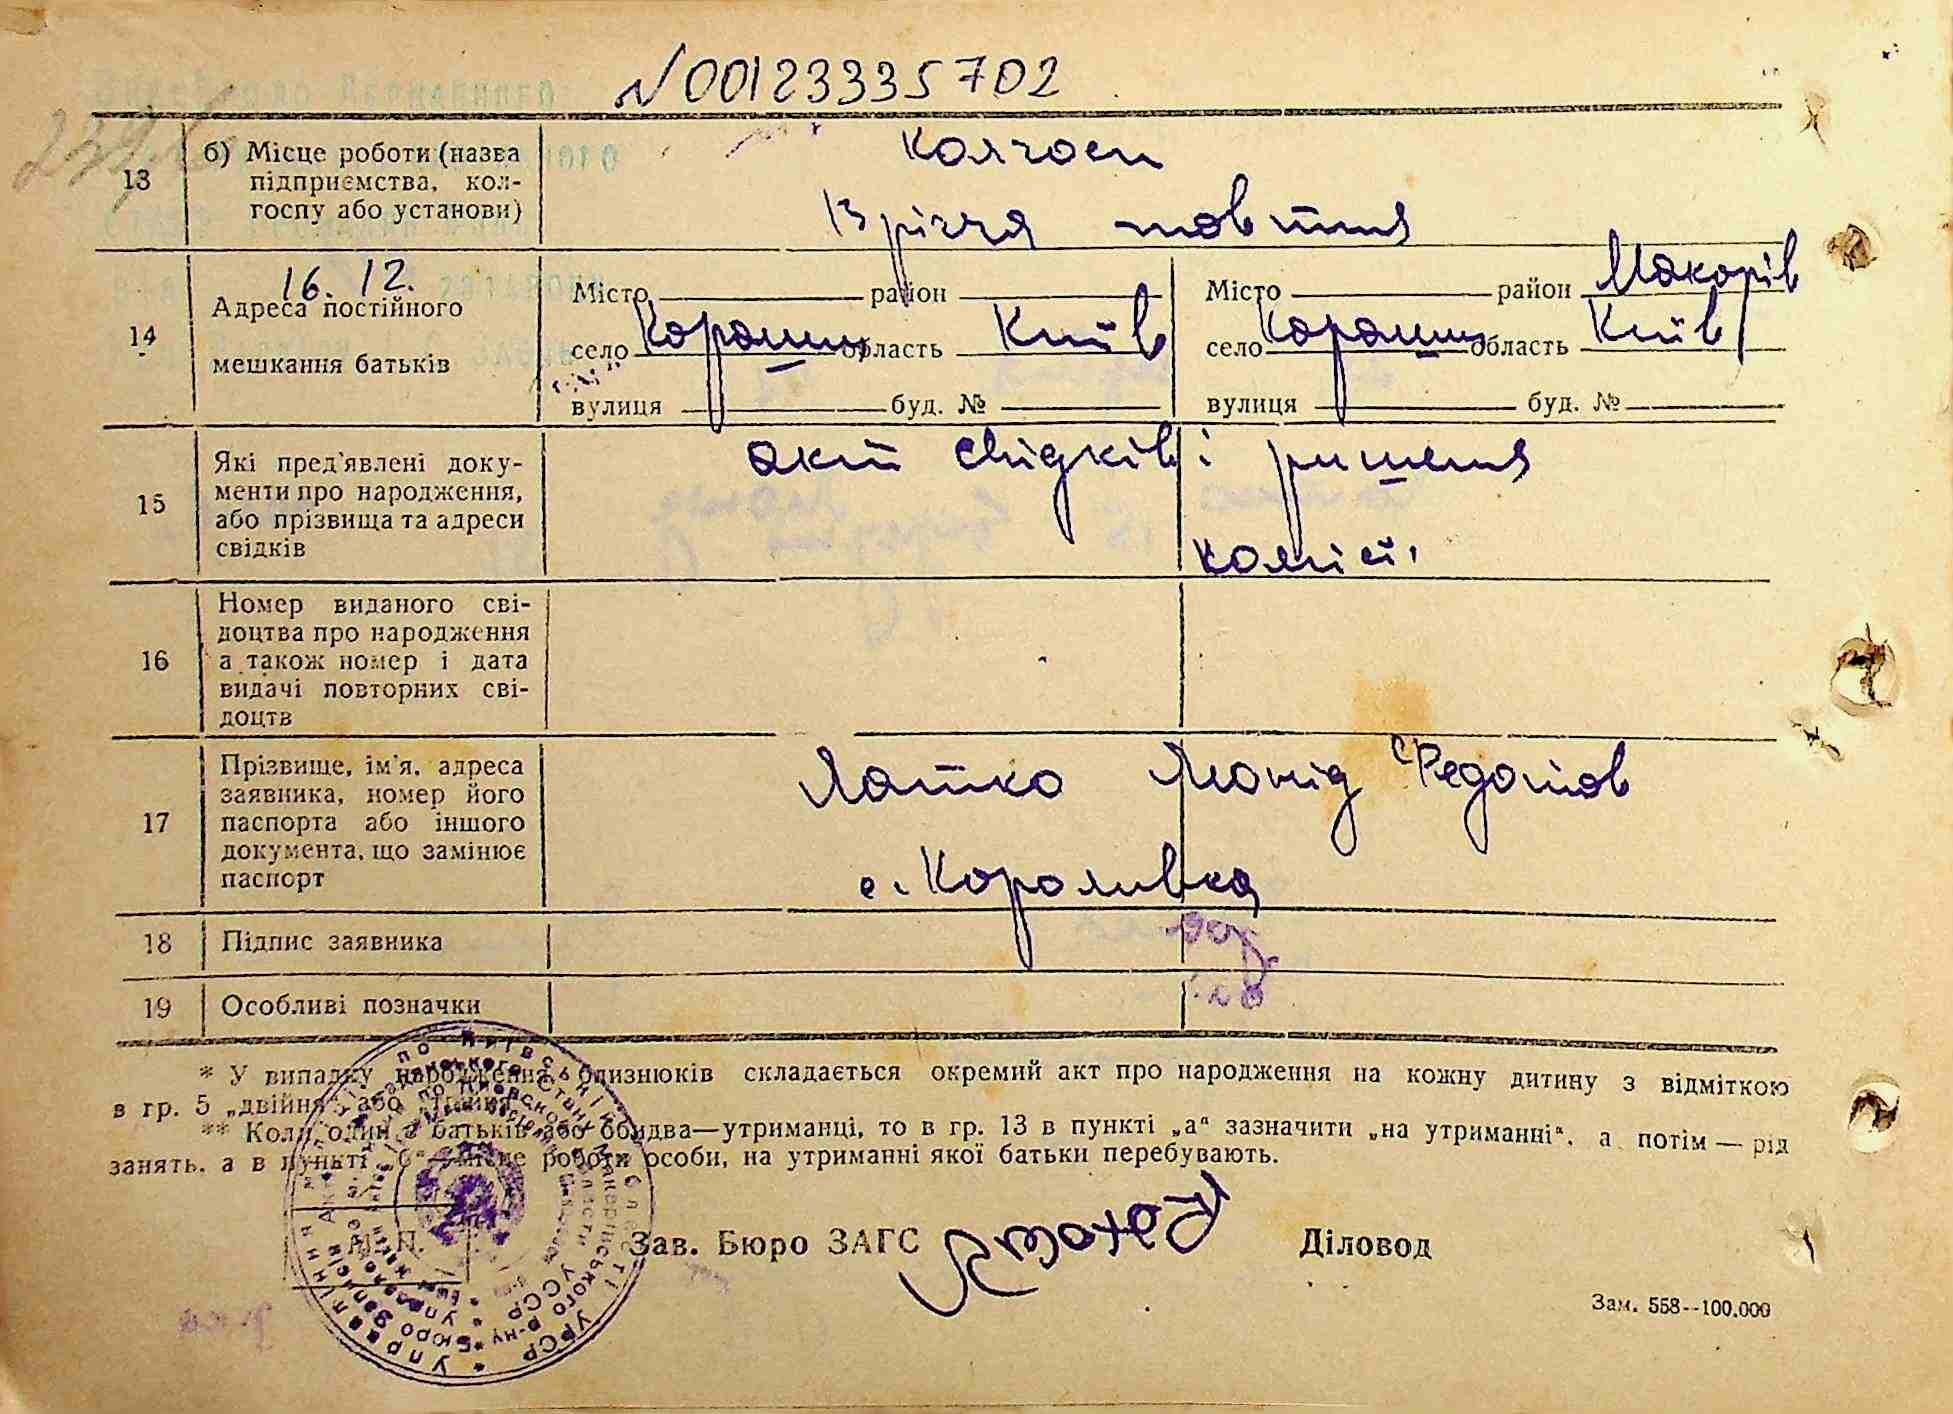 N00123335702
13
б) Місце роботи (назва
підприємства, кол-
госпу або установи)
Колгосп
13 річчя жовтня
14
16. 12.
Адреса постійного
мешкання батьків
Місто район
село Корашин область Київ
вулиця буд. №
Місто район Макарів
село Корашин область Київ
вулиця буд. №
15
Які пред'явлені доку-
менти про народження,
або прізвища та адреси
свідків
акт свідків і ришення
комісії
16
Номер виданого сві-
доцтва про народження
а також номер і дата
видачі повторних сві-
доцтв
17
Прізвище, ім'я, адреса
заявника, номер його
паспорта або іншого
документа, що замінює
паспорт
Лятко Леонід Федотов
с. Короливка
18
Підпис заявника
19
Особливі позначки
* У випадку народження близнюків складається окремий акт про народження на кожну дитину з відміткою
в гр. 5 „двійня“ або „трійня“.
** Коли один з батьків або обидва—утриманці, то в гр. 13 в пункті „а“ зазначити „на утриманні“, а потім — рід
занять, а в пункті „б“ — місце роботи особи, на утриманні якої батьки перебувають.
М. П.
Зав. Бюро ЗАГС
Діловод
Зам. 558--100.000